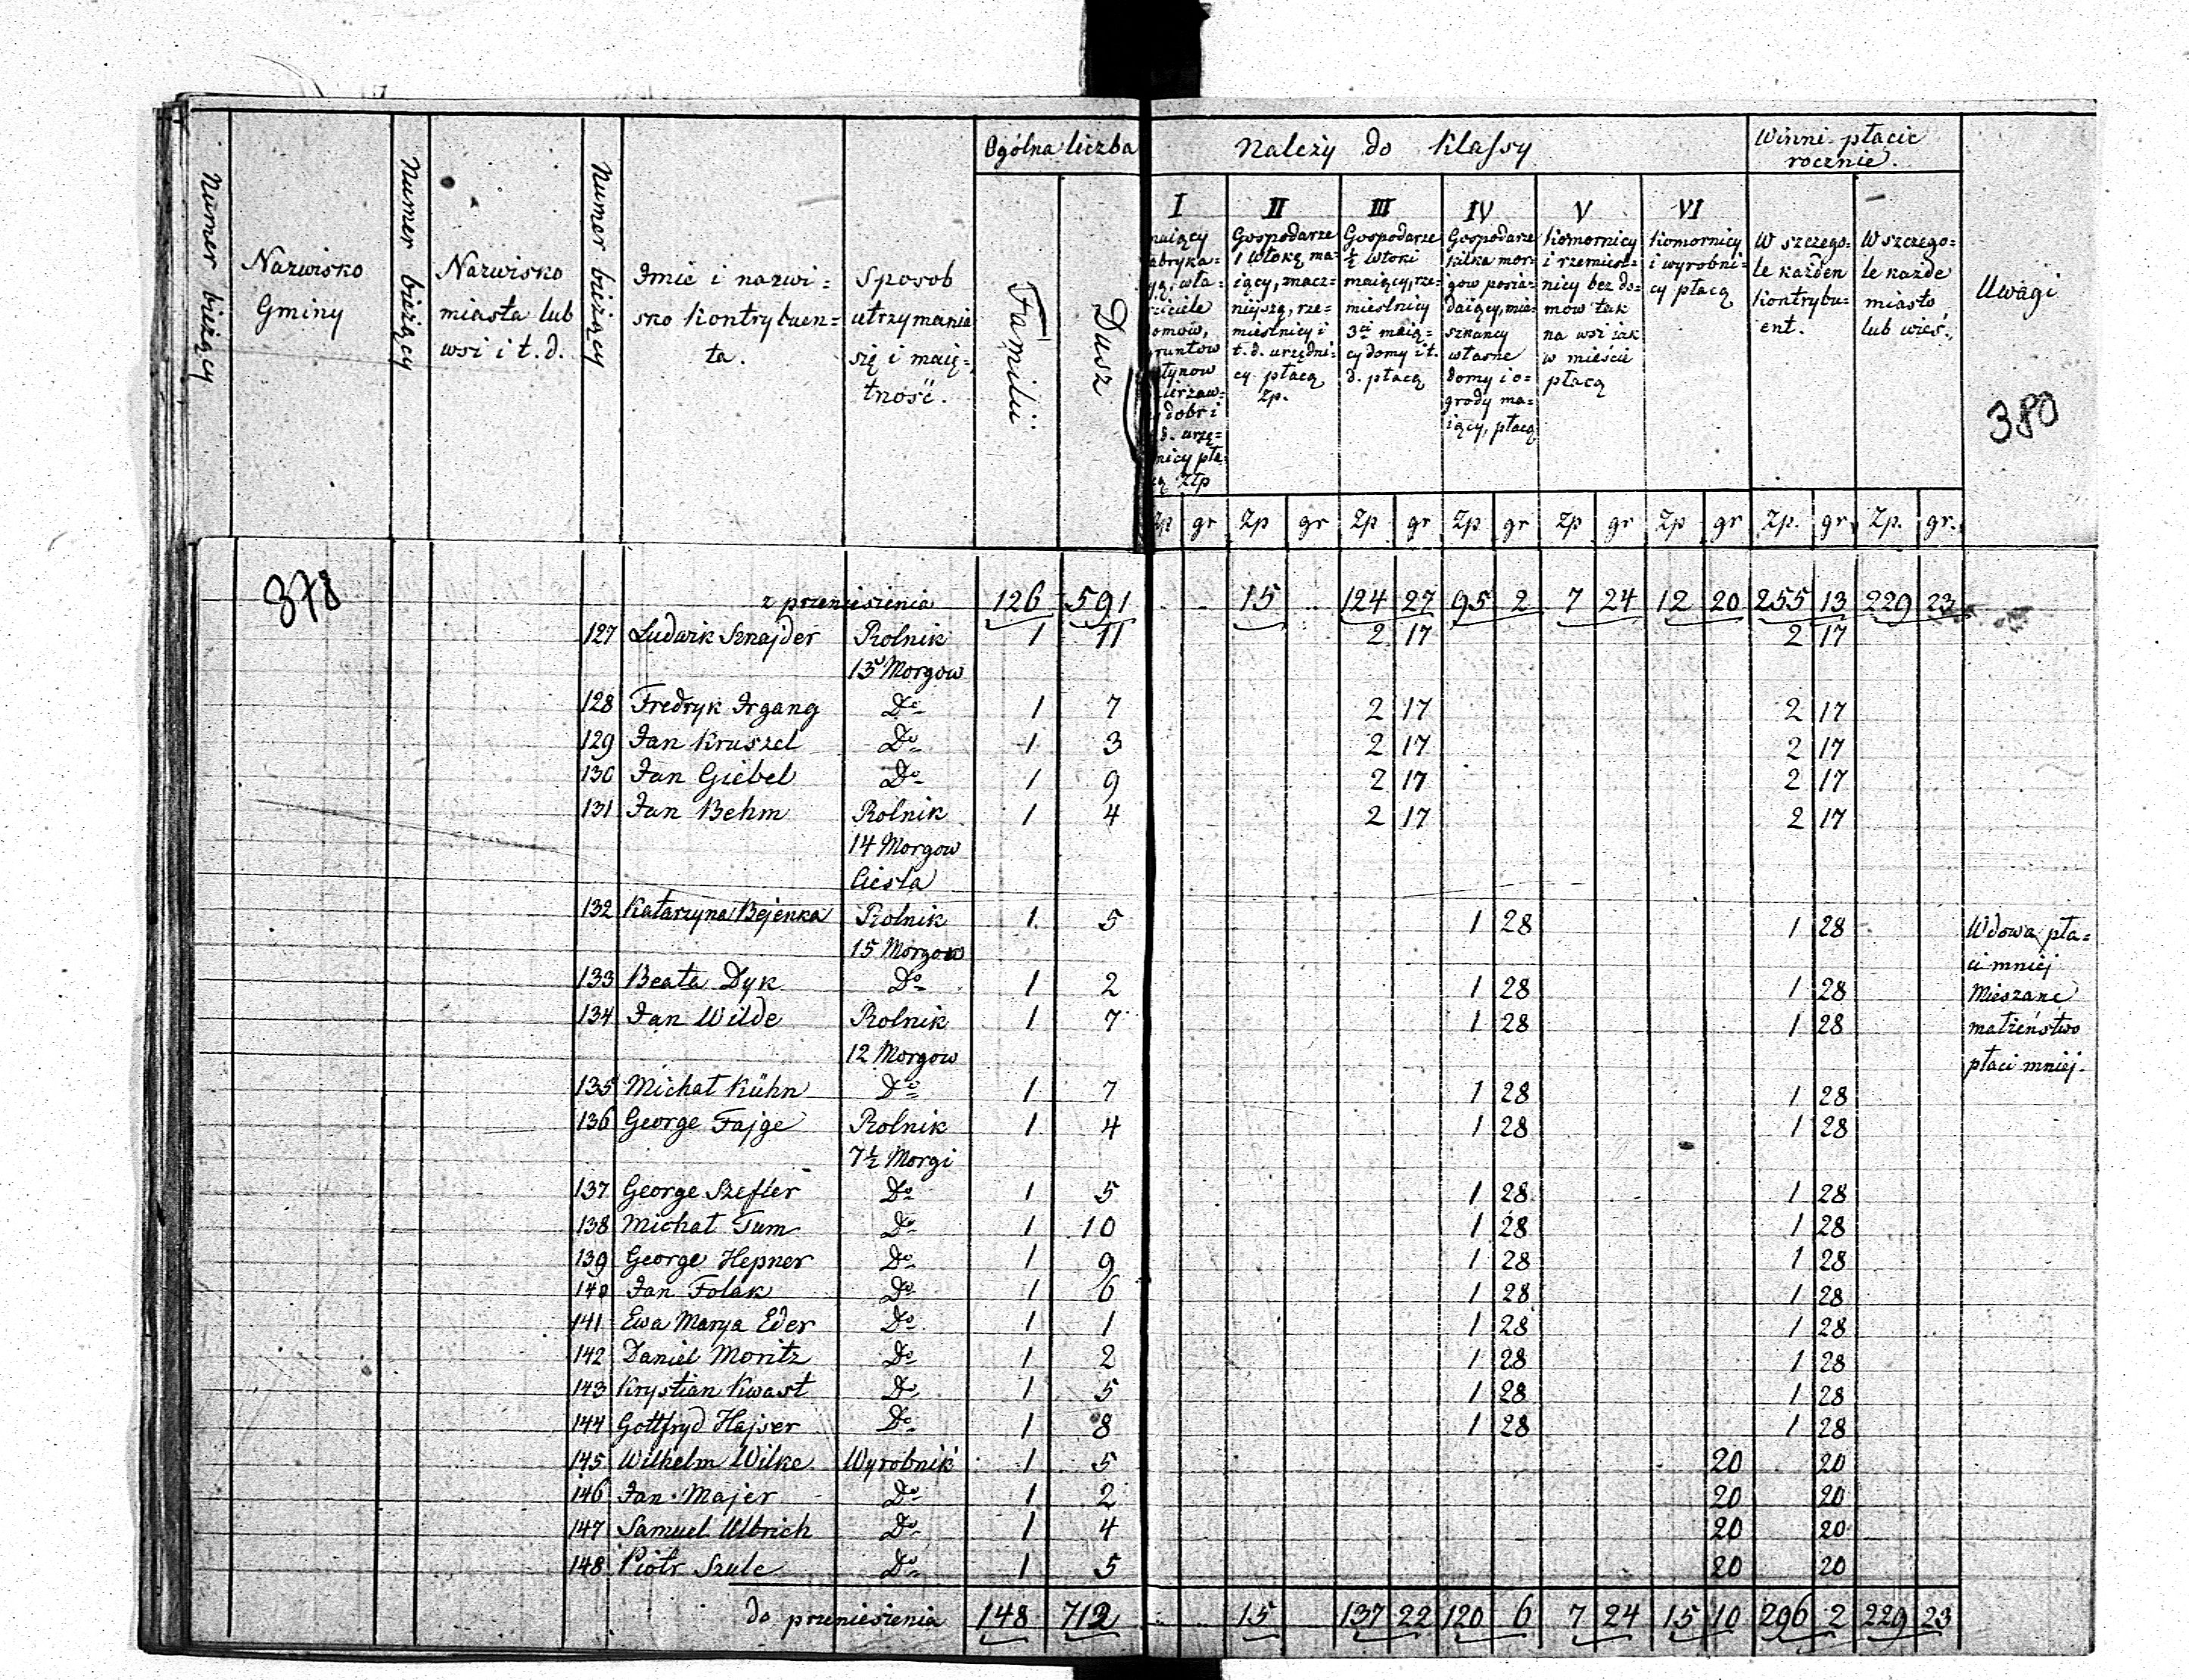 Numer bieżący
Nazwisko
Gminy
Numer bieżący
Nazwisko
miasta lub
wsi i t. d.
Numer bieżący
Imie i nazwi=
sko kontrybuen=
ta.
Sposob
utrzymania
się i maię=
tność.
Ogólna liczba
Familii
Dusz
Należy do klassy
I
II
Gospodarze
1 włokę ma=
iący, znacz=
nieysze, rze=
mieslnicy i
t. d. urzędni=
cy płacą
Zp.
III
Gospodarze
½ włoki
maiący, rze=
mieslnicy
3ci maią=
cy domy i t.
d. płacą
IV
Gospodarze
kilka mor=
gow posia=
daiący, mie=
szkancy
własne
domy i o=
grody ma=
iący, płacą
V
Komornicy
i rzemiesl=
nicy bez do=
mow tak
na wsi iak
w mieście
płacą
VI
Komornicy
i wyrobni=
cy płacą
Winni płacic
rocznie.
W szczego=
le każden
kontrybu=
ent.
W szczego=
le każde
miasto
lub wieś.
Uwagi
380
Zp gr Zp gr Zp gr Zp gr Zp gr Zp gr Zp. gr Zp. gr.
378
z przeniesienia 126 591 15 124 27 95 2 7 24 12 20 255 13 229 23
127 Ludwik Sznajder Rolnik 1 11 2 17 2 17
15 Morgow
128 Fredryk Irgang Do 1 7 2 17 2 17
129 Jan Kruszel Do 1 3 2 17 2 17
130 Jan Giebel Do 1 9 2 17 2 17
131 Jan Behm Rolnik 1 4 2 17 2 17
14 Morgow
Ciesla
132 Katarzyna Bejenka Rolnik 1 5 1 28 1 28 Wdowa pła=
15 Morgow ci mniej
133 Beata Dyk Do 1 2 1 28 1 28 Mieszane
134 Jan Wilde Rolnik 1 7 1 28 1 28 małżeństwo
12 Morgow płaci mniej.
135 Michał Kühn Do 1 7 1 28 1 28
136 George Fajge Rolnik 1 4 1 28 1 28
7½ Morgi
137 George Szefler Do 1 5 1 28 1 28
138 Michał Tum Do 1 10 1 28 1 28
139 George Hepner Do 1 9 1 28 1 28
140 Jan Folak Do 1 6 1 28 1 28
141 Ewa Marya Eder Do 1 1 1 28 1 28
142 Daniel Moritz Do 1 2 1 28 1 28
143 Krystian Kwast Do 1 5 1 28 1 28
144 Gottfryd Hajser Do 1 8 1 28 1 28
145 Wilhelm Wilke Wyrobnik 1 5 20 20
146 Jan Majer Do 1 2 20 20
147 Samuel Ulbrich Do 1 4 20 20
148 Piotr Szulc Do 1 5 20 20
do przeniesienia 148 712 15 137 22 120 6 7 24 15 10 296 2 229 23